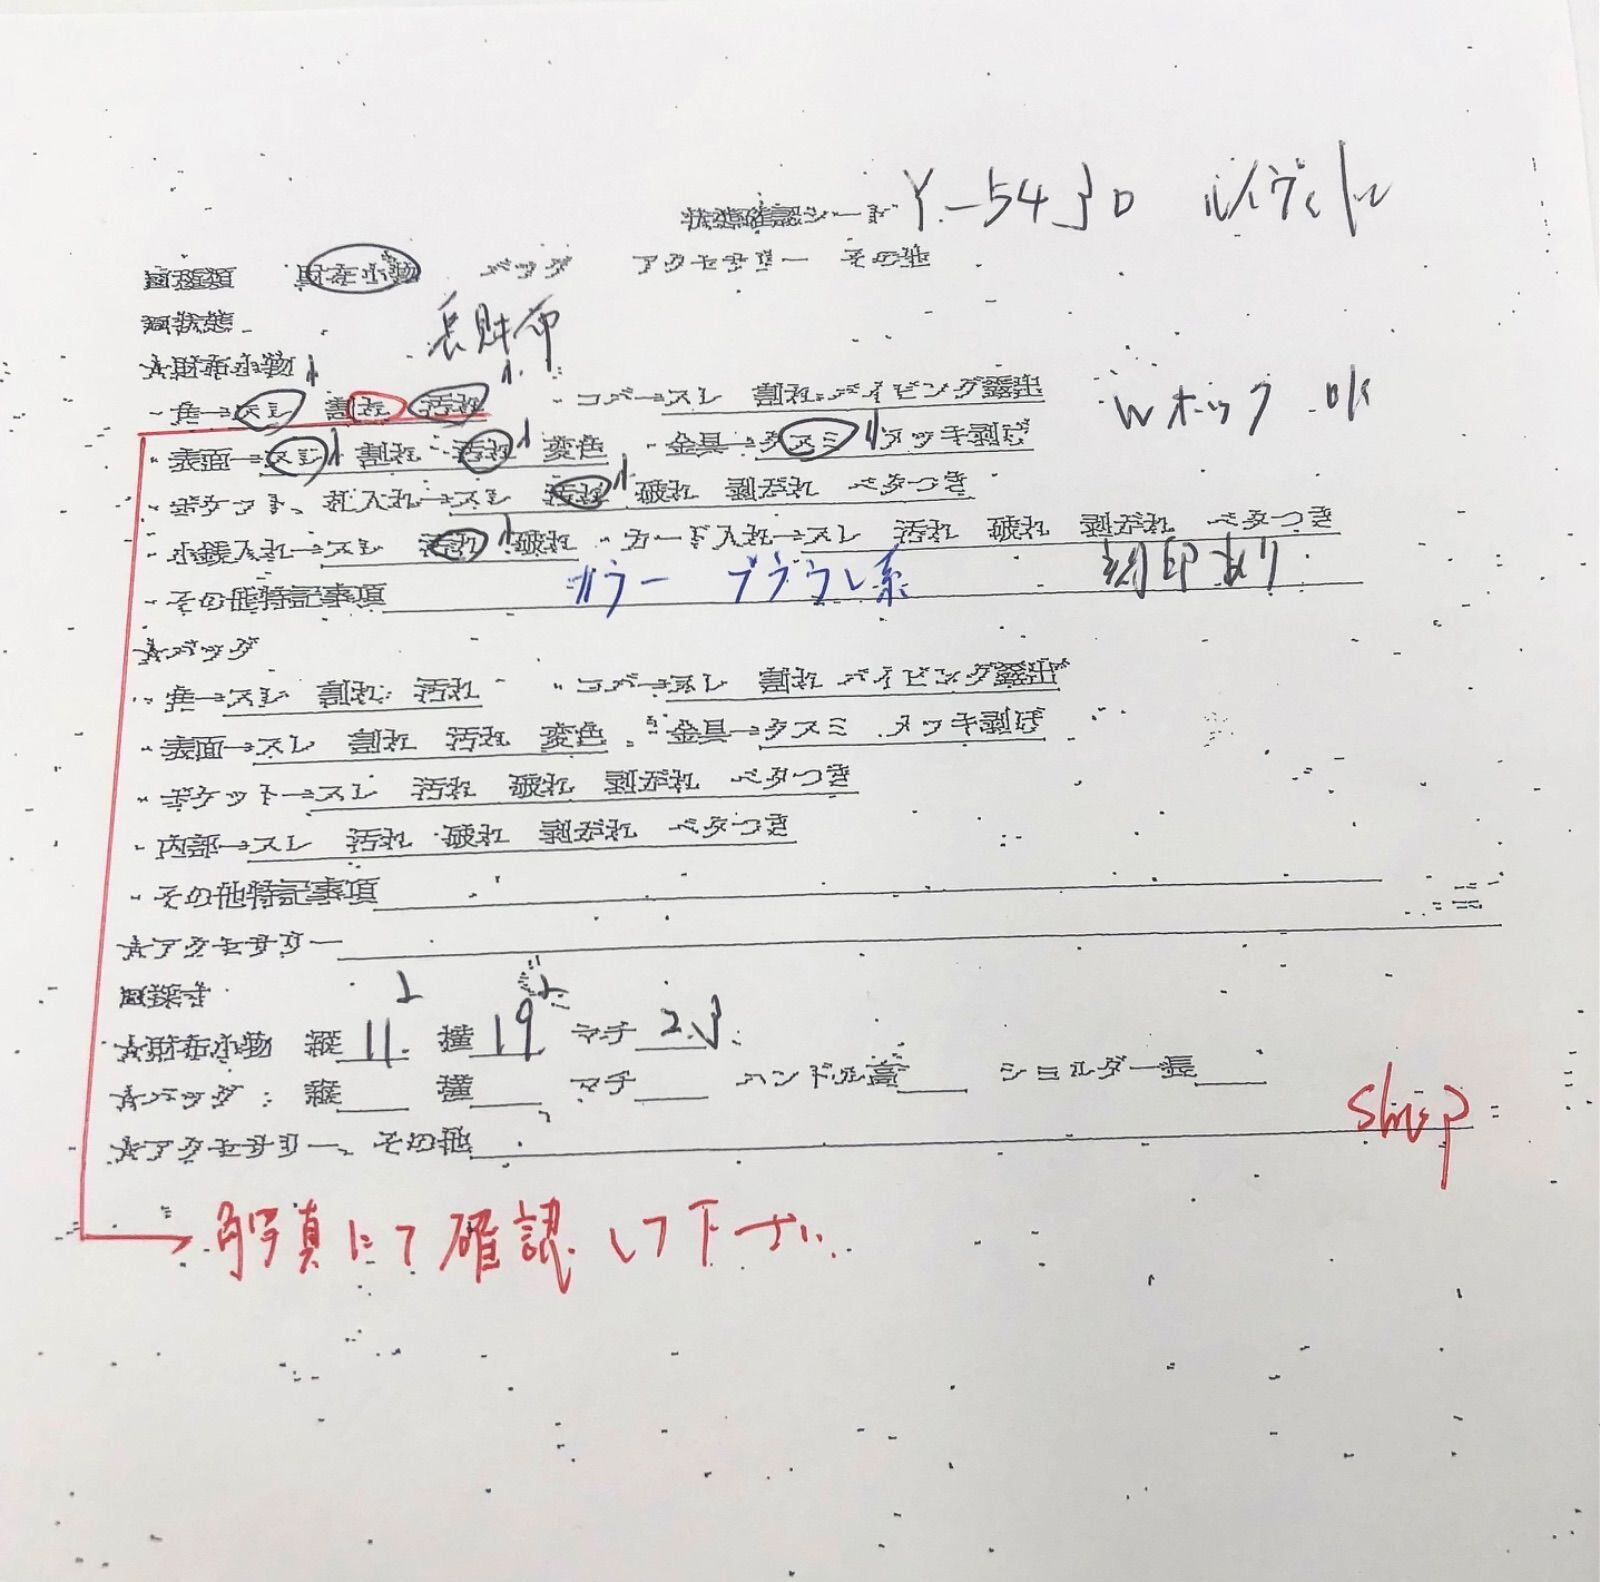 状態確認シード Y-5430 ルイヴィトン
■種類 財布小物 バッグ アクセサリー その他
■状態
長財布
★財布小物
・角→スレ 割れ 汚れ ・コバ→スレ 割れ パイピング露出 Wホック OK
・表面→スレ 小 割れ 汚れ 小 変色 ・金具→クスミ 小 メッキ剥げ
・ポケット、札入れ→スレ 汚れ 小 破れ 剥がれ ベタつき
・小銭入れ→スレ 汚れ 小 破れ ・カード入れ→スレ 汚れ 破れ 剥がれ ベタつき
・その他特記事項 カラー ブラウン系 刻印あり
★バッグ
・角→スレ 割れ 汚れ ・コバ→スレ 割れ パイピング露出
・表面→スレ 割れ 汚れ 変色 ・金具→クスミ メッキ剥げ
・ポケット→スレ 汚れ 破れ 剥がれ ベタつき
・内部→スレ 汚れ 破れ 剥がれ ベタつき
・その他特記事項
★アクセサリー
■採寸
★財布小物 縦 11 横 19 マチ 2.3
★バッグ：縦 横 マチ ハンドル高 ショルダー長
★アクセサリー、その他
shop
角写真にて確認して下さい。